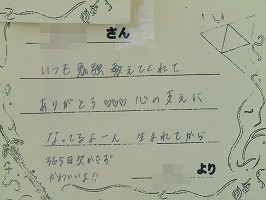 さん
いつも勉強教えてくれて
ありがとう♡♡♡ 心の支えに
なってるよーん 生まれてから
365日欠かさず
かわいいよ!!
より